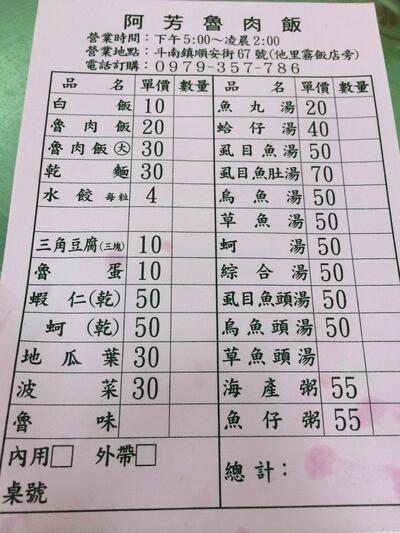 阿芳魯肉飯
營業時間：下午5:00～凌晨2:00
營業地點：斗南鎮順安街67號(他里霧飯店旁)
電話訂購：0979-357-786
品名 單價 數量 品名 單價 數量
白飯 10 魚丸湯 20
魯肉飯 20 蛤仔湯 40
魯肉飯(大) 30 虱目魚湯 50
乾麵 30 虱目魚肚湯 70
水餃 每粒 4 烏魚湯 50
草魚湯 50
三角豆腐(三塊) 10 蚵湯 50
魯蛋 10 綜合湯 50
蝦仁(乾) 50 虱目魚頭湯 50
蚵(乾) 50 烏魚頭湯 50
地瓜葉 30 草魚頭湯
波菜 30 海產粥 55
魯味 魚仔粥 55
內用□ 外帶□ 總計：
桌號